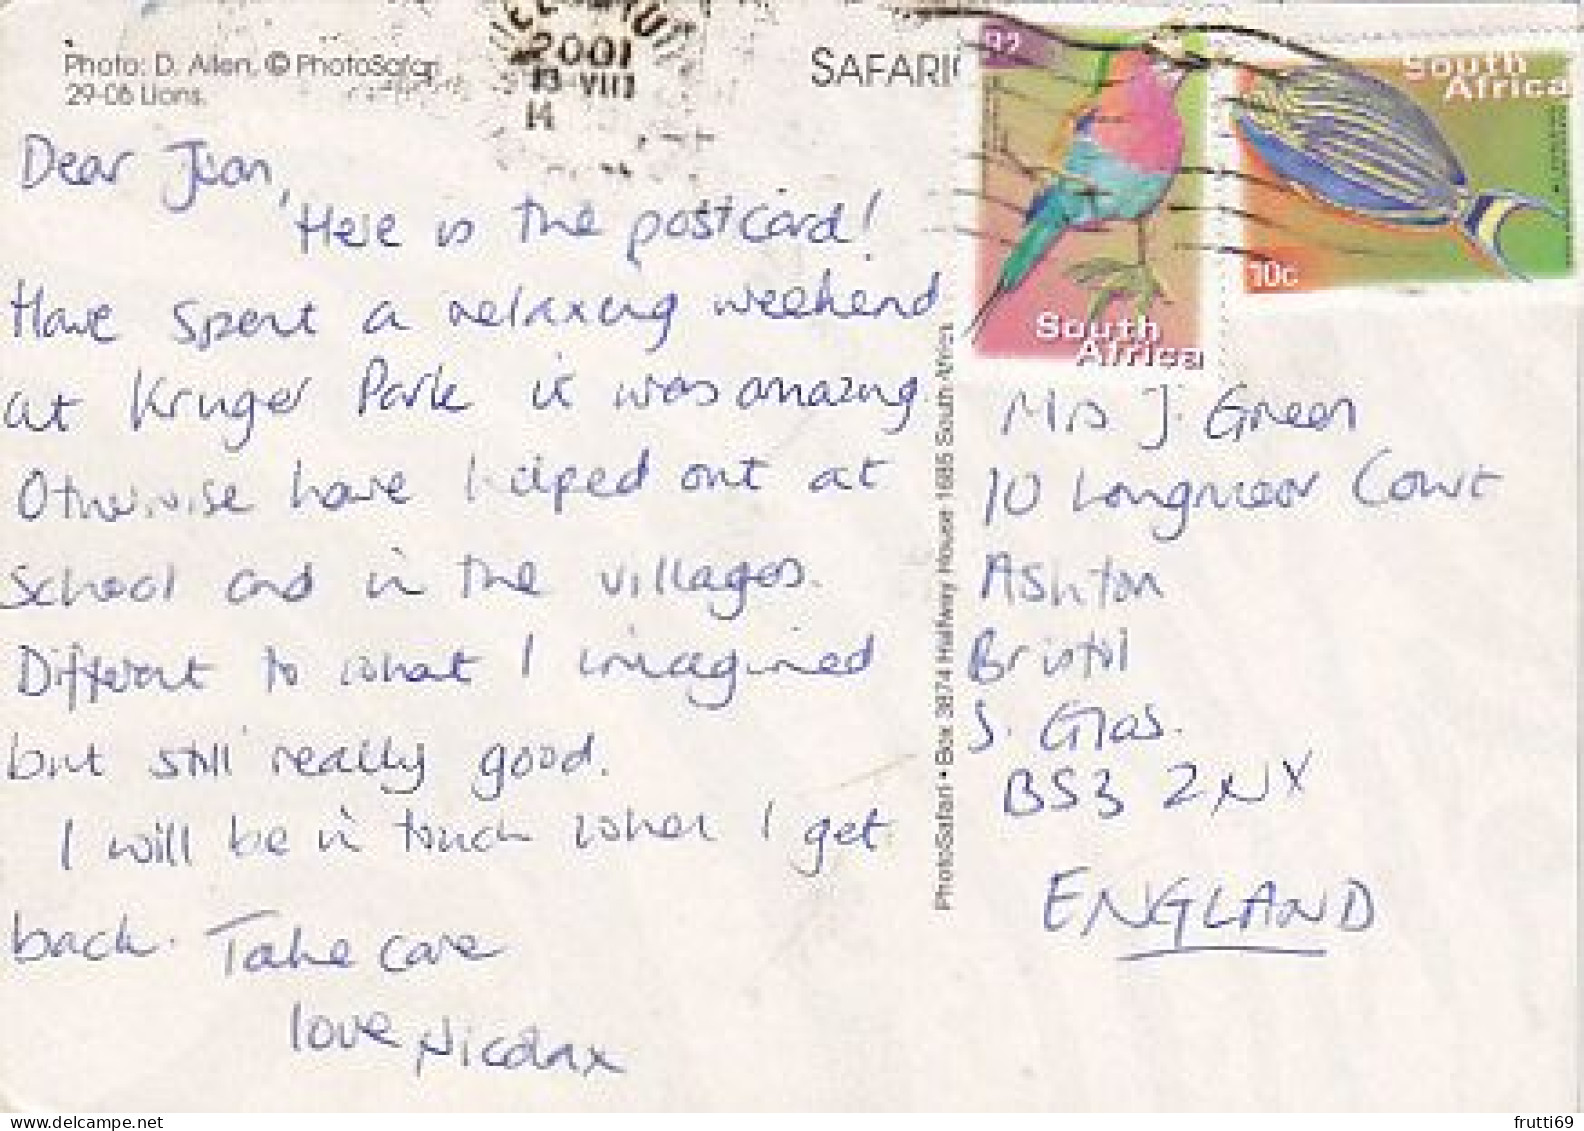 Photo: D. Allen, © PhotoSafari
29-06 Lions.
2001
13-VIII
14
SAFARI
R2
South
Africa
South
Africa
10c
Dear Jean,
Here is the postcard!
Have spent a relaxing weekend
at Kruger Park it was amazing.
Otherwise have helped out at
School and in the villages.
Different to what I imagined
but still really good.
I will be in touch when I get
back. Take care
love Nicola x
PhotoSafari • Box 3874 Halfway House 1685 South Africa
Mrs J. Green
10 Longmoor Court
Ashton
Bristol
S. Glos.
BS3 2NX
ENGLAND
frutti69